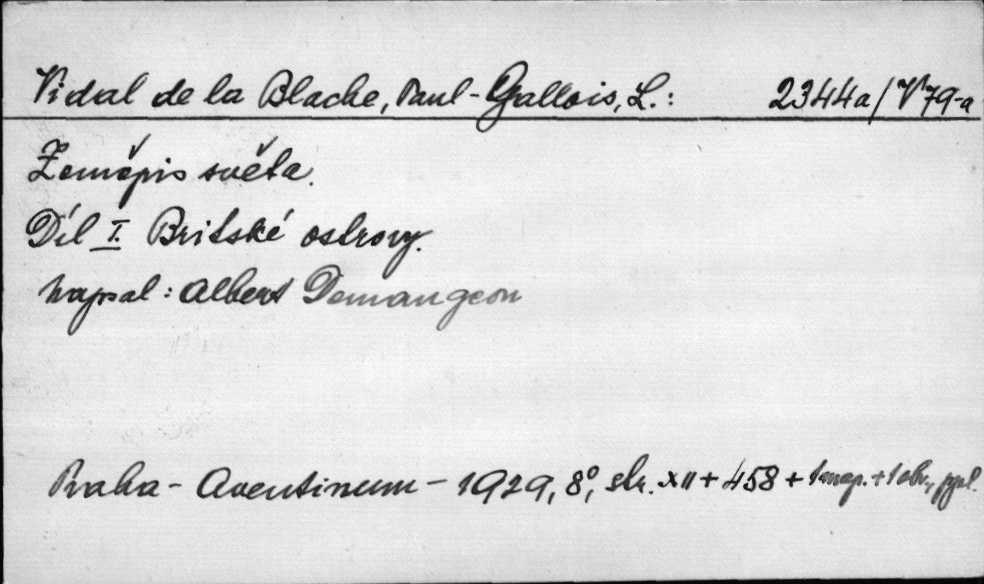 Vidal de la Blache, Paul - Gallois, L.: 2344a/V79-a
Zeměpis světa.
Díl I. Britské ostrovy.
napsal: Albert Demangeon
Praha - Aventinum - 1929, 8°, str. XII + 458 + 1 map. + 1 obr.,